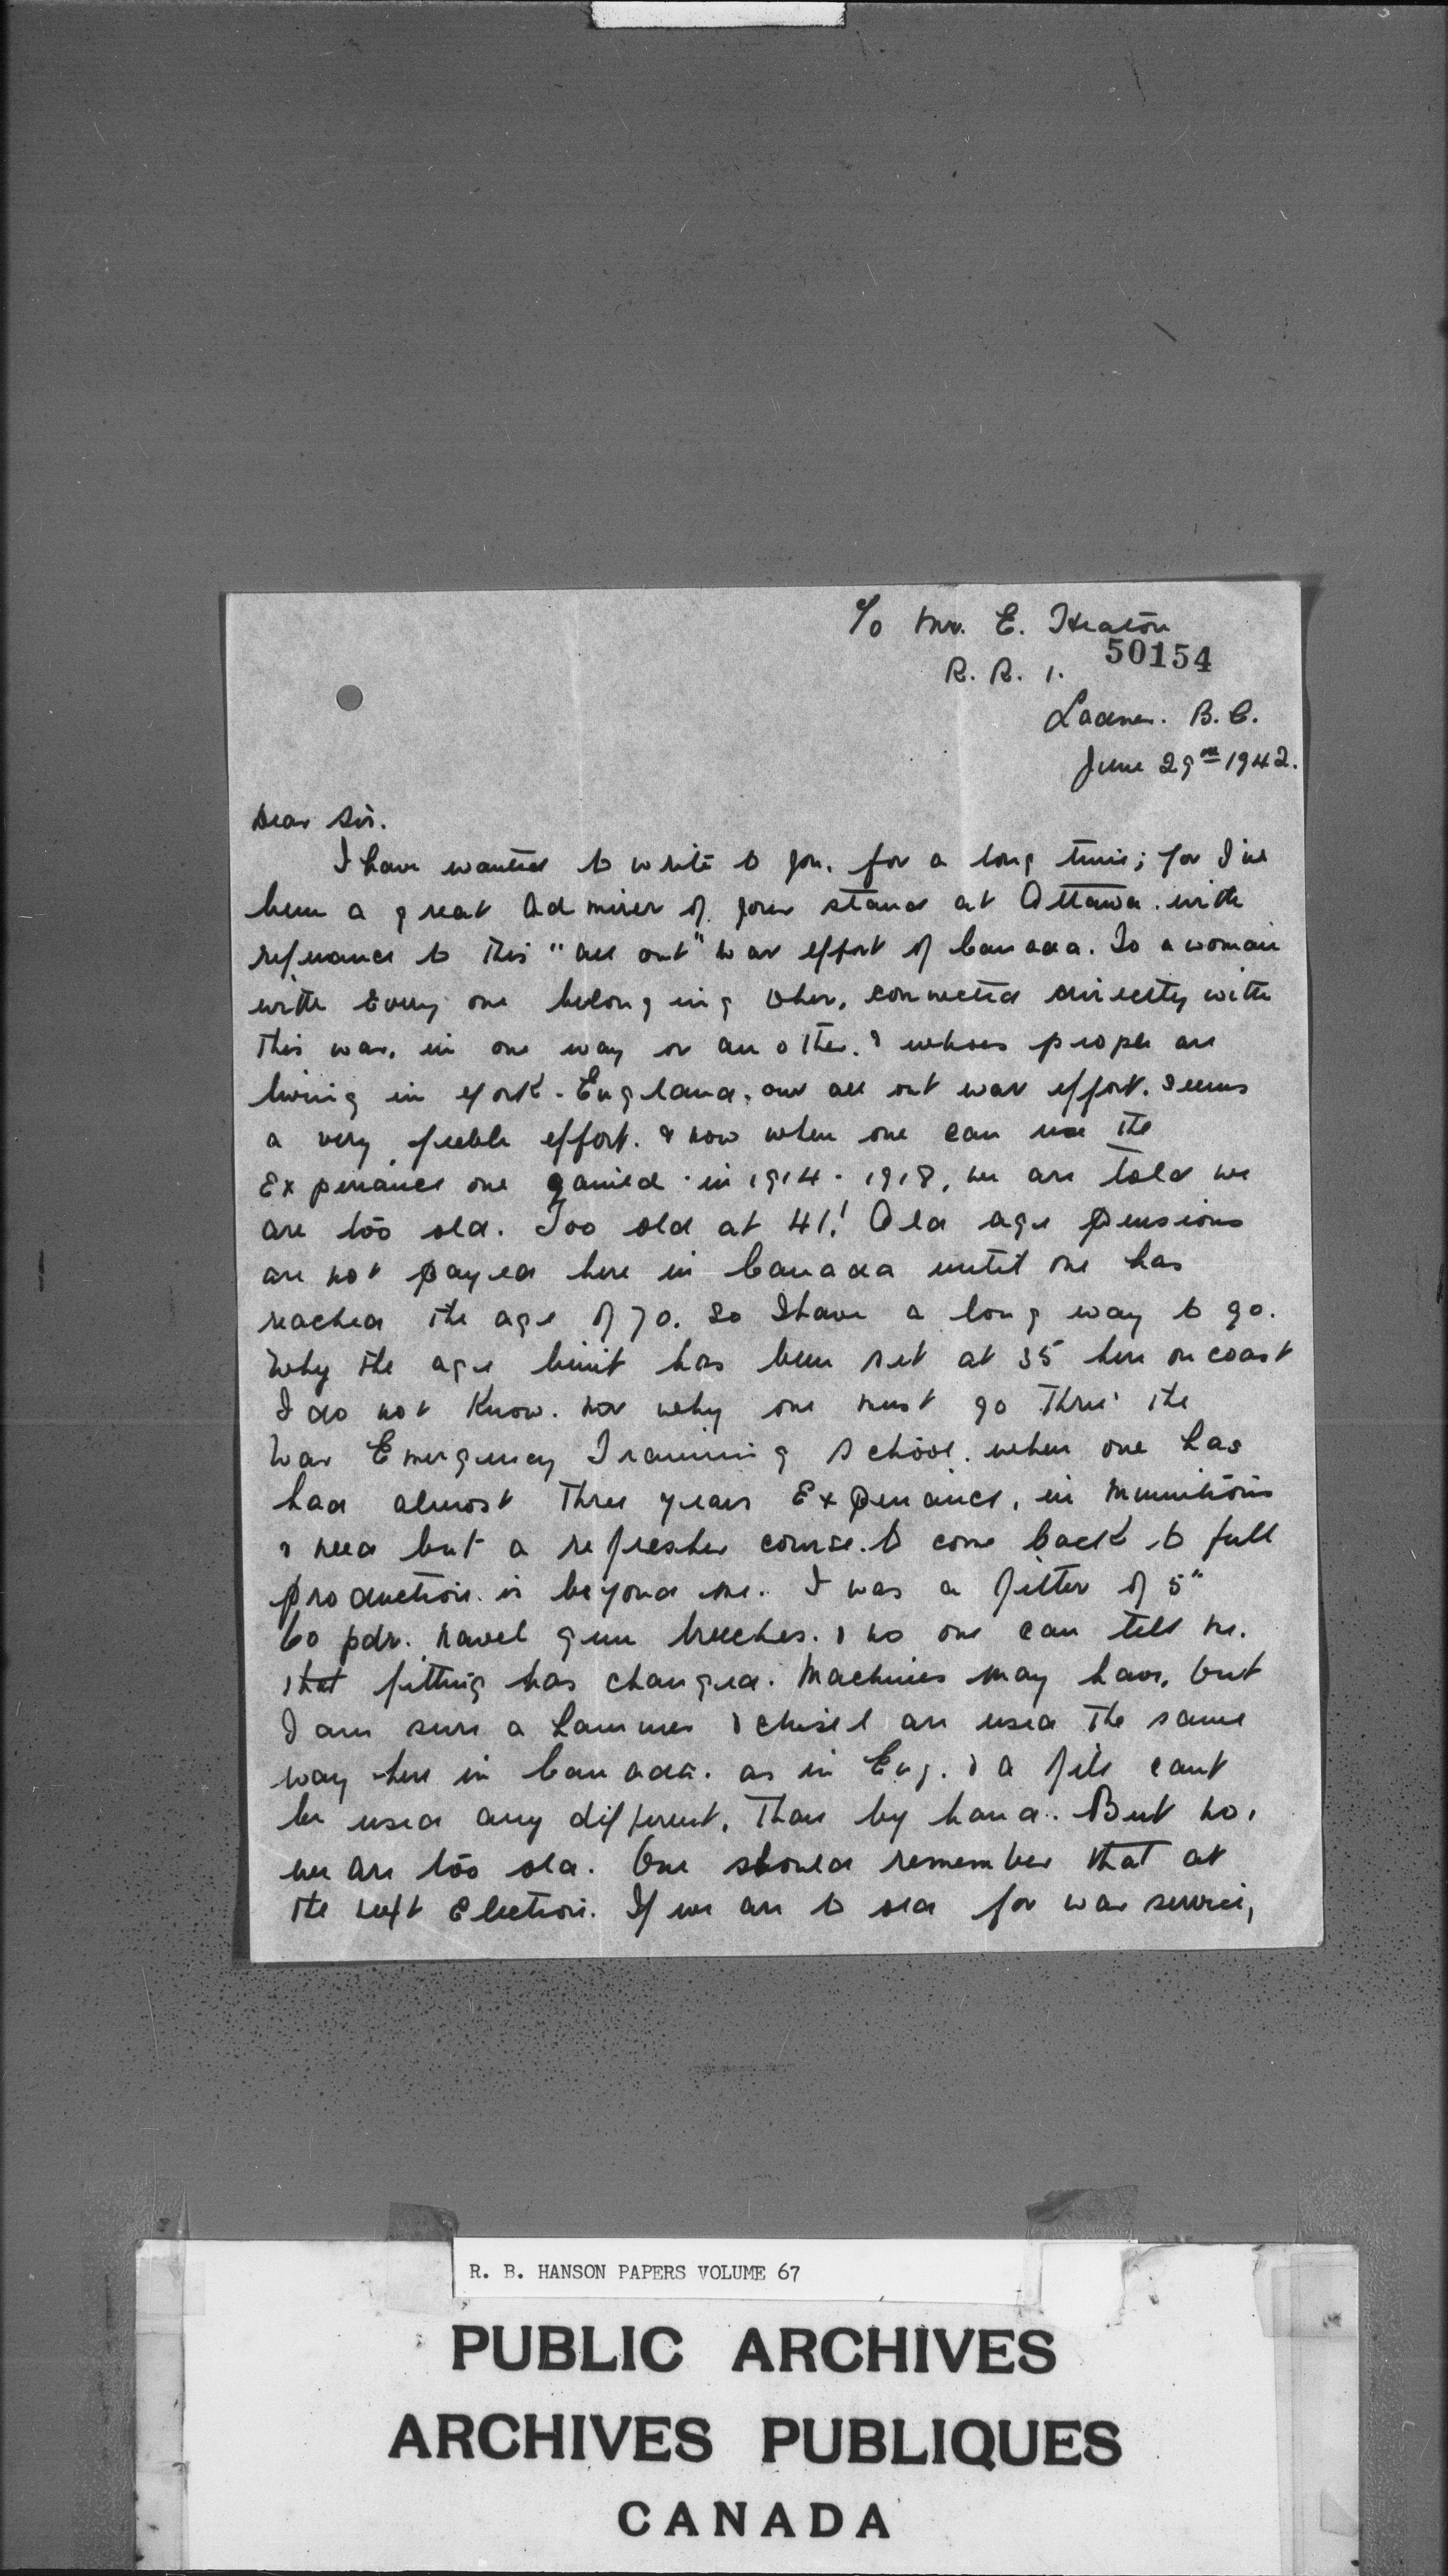 c/o Mr. E. Heaton
50154
R. R. 1.
Ladner. B.C.
June 29th 1942.
Dear Sir.
I have wanted to write to you, for a long time; for I've
been a great admirer of your stand at Ottawa. with
referance to this "all out" war effort of Canada. To a woman
with every one belonging to her, connected directly with
this war, in one way or another. & whoes people are
living in York. England, our all out war effort. seems
a very feeble effort. & now when one can use the
Experiance one gained in 1914 - 1918, we are told we
are too old. Too old at 41! Old age pensions
are not payed here in Canada until one has
reached the age of 70. So I have a long way to go.
Why the age limit has been set at 35 here on coast
I do not Know. nor why one must go thru' the
War Emergency Training School. when one has
had almost three years Experiance, in munitions
& need but a refresher course. to come back to full
production. is beyond me. I was a fitter of 5"
60 pdr. navel gun breeches. & no one can tell me.
that fitting has changed. Machines may have, but
I am sure a hammer & chisel are used the same
way here in Canada. as in Eng. & a file cant
be used any different, than by hand. But no,
we are too old. One should remember that at
the next Election. If we are to old for war service,
R. B. HANSON PAPERS VOLUME 67
PUBLIC ARCHIVES
ARCHIVES PUBLIQUES
CANADA